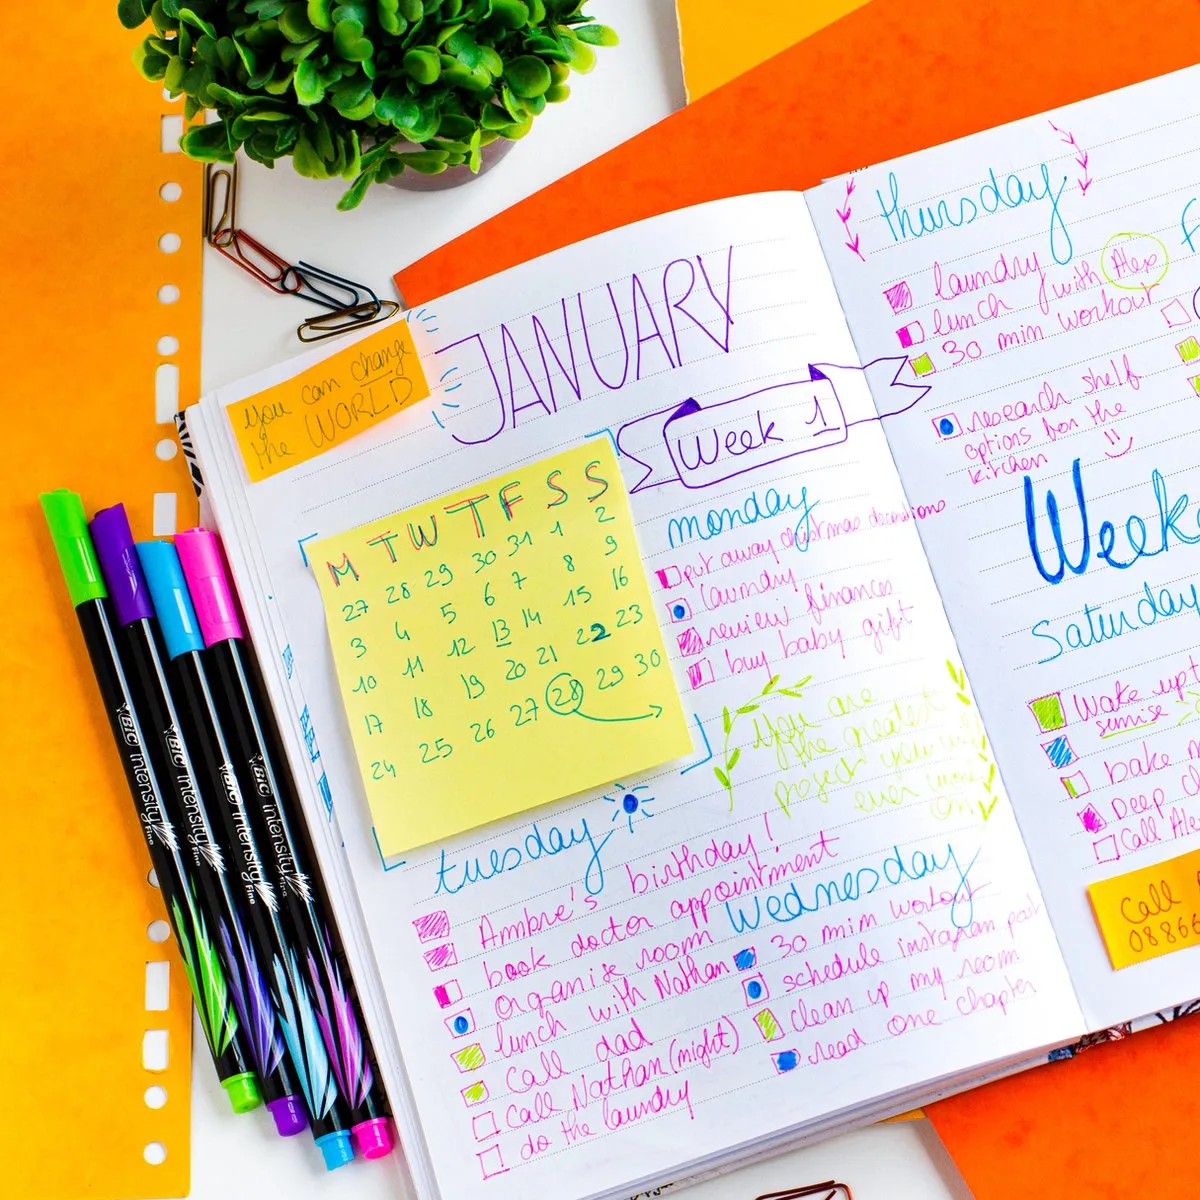 you can change
the WORLD
JANUARY
Week 1
M T W T F S S
27 28 29 30 31 1 2
3 4 5 6 7 8 9
10 11 12 13 14 15 16
17 18 19 20 21 22 23
24 25 26 27 28 29 30
monday
put away christmas decorations
laundry
review finances
buy baby gift
You are
the greatest
project you will
ever work
on
tuesday
Ambre's birthday!
book doctor appointment
organise room
lunch with Nathan
call dad
call Nathan (night)
do the laundry
Wednesday
30 min workout
schedule instagram
clean up my room
read one chapter
thursday
laundry
lunch with Alex
30 min workout
research shelf
options for the
kitchen
Week
Saturday
wake up
sunrise
bake
Deep
Call Alex
Call
08866
BiC intensity Fine
BiC intensity Fine
BiC intensity Fine
BiC intensity Fine